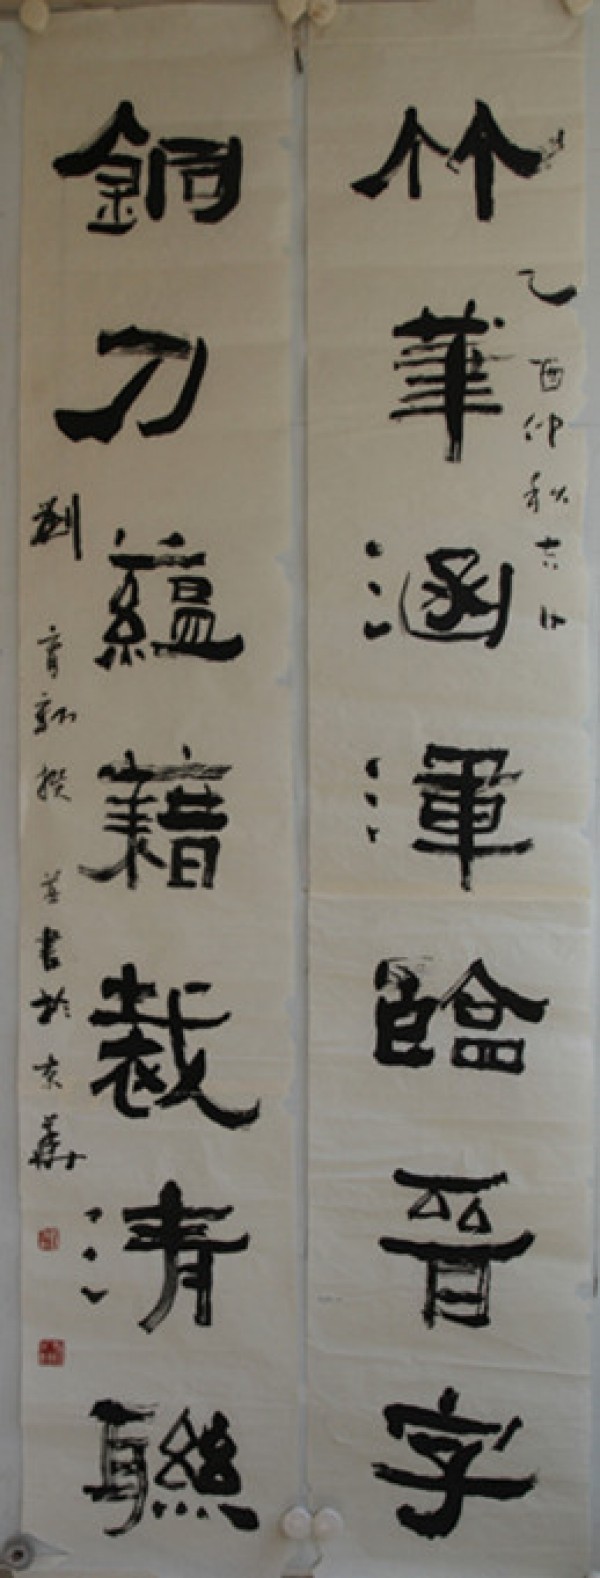 竹筆涵渾臨晉字
乙酉仲秋吉日
銅刀蘊藉裁清聯
劉育新撰並書於京華